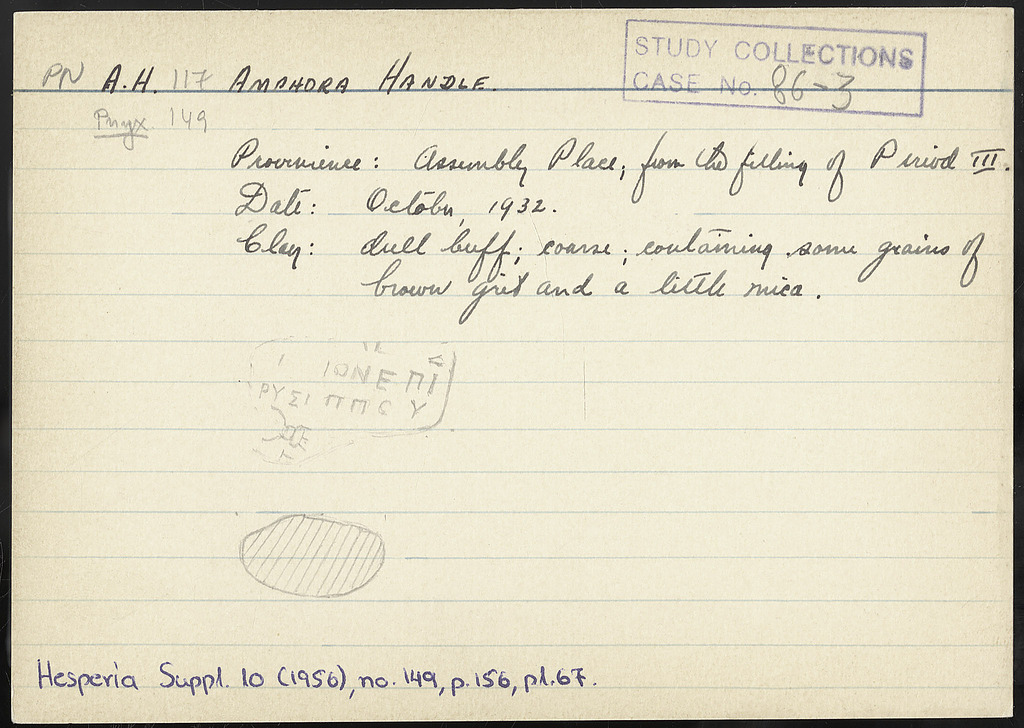 STUDY COLLECTIONS
CASE No. 86-3
PN A.H. 117 AMPHORA HANDLE.
Pnyx 149
Provenience: Assembly Place; from the filling of Period III.
Date: October, 1932.
Clay: dull buff; coarse; containing some grains of
brown grit and a little mica.
ΙΟΝΕΠΙ
ΡΥΣΙΠΠΟΥ
Hesperia Suppl. 10 (1956), no. 149, p. 156, pl. 67.